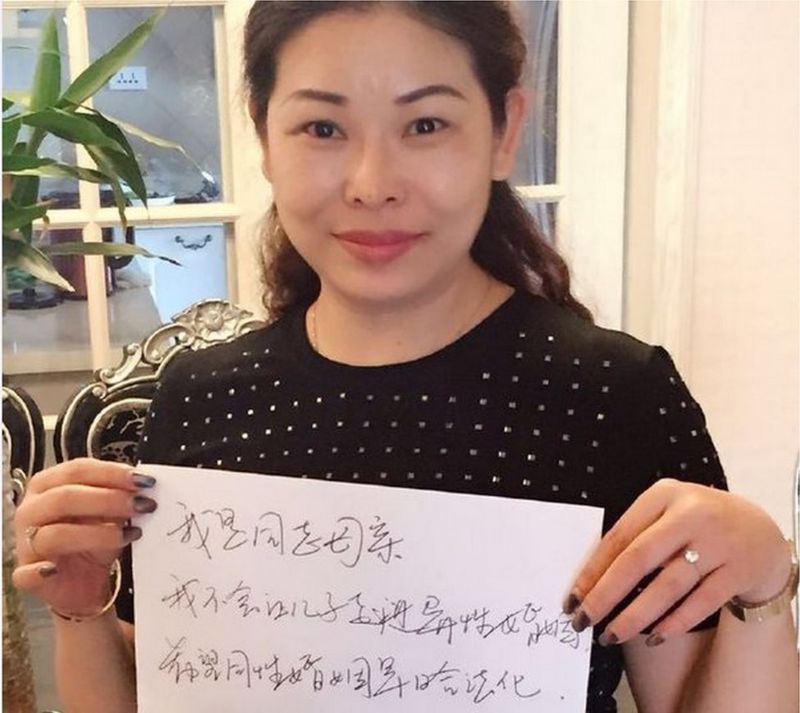 我是同志母亲
我不会让儿子走进异性婚姻
希望同性婚姻早日合法化.